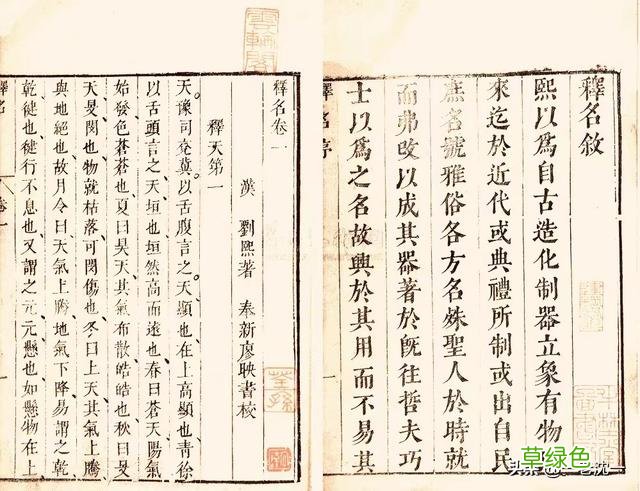 釋名敘
熙以爲自古造化制器立象有物
來迄於近代或典禮所制或出自民
庶名號雅俗各方名姝聖人於時就
而弗改以成其器著於旣往哲夫巧
士以爲之名故興於其用而不易其
釋名序
雲輪閣
釋名卷一
漢 劉熙著 奉新廖暎書校
荃孫
釋天第一
天豫司兖冀以舌腹言之天顯也在上高顯也青徐
以舌頭言之天垣也垣然高而遠也春曰蒼天陽氣
始發色蒼蒼也夏曰昊天其氣布散皓皓也秋曰旻
天旻閔也物就枯落可閔傷也冬曰上天其氣上騰
與地絕也故月令曰天氣上騰地氣下降易謂之乾
乾健也健行不息也又謂之元元懸也如懸物在上
釋名 卷一
草绿色